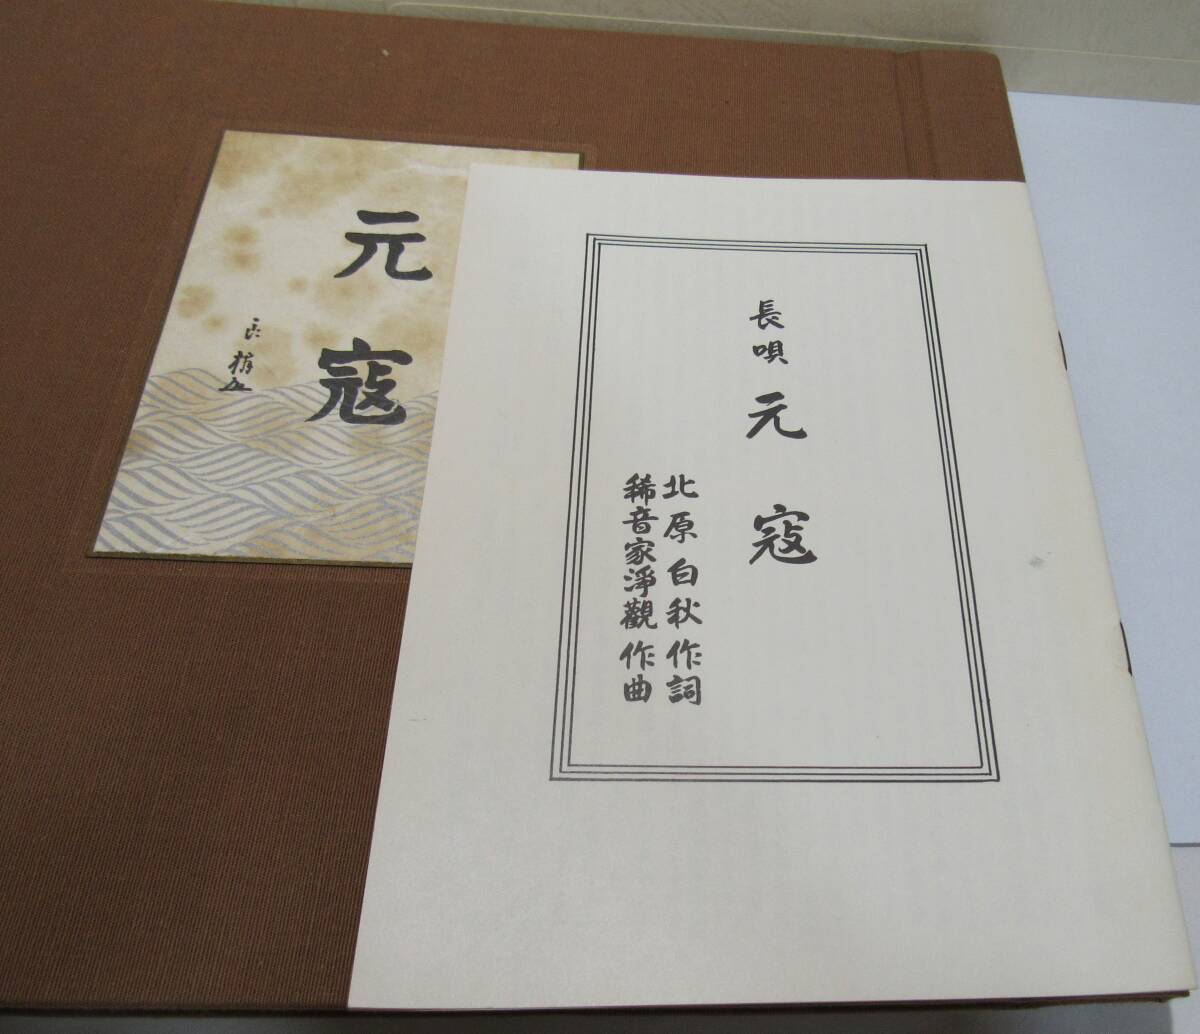 元寇
長唄 元寇
北原白秋作詞
稀音家淨觀作曲